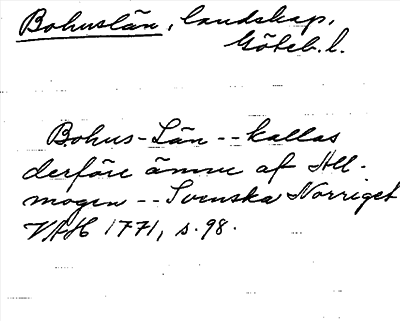 Bohuslän, landskap,
Göteb. l.
Bohus-Län -- kallas
derföre ännu af All-
mogen -- Svenska Norriget
VAH 1771, s. 98.